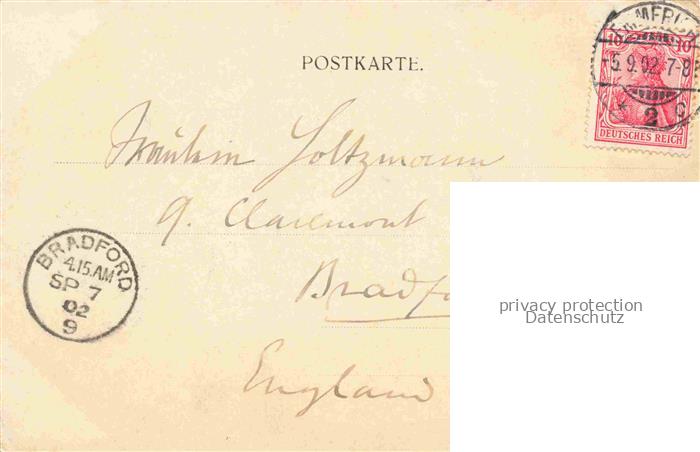 POSTKARTE.
EMMERICH
-5.9.02.7-8
* 2 c
10 10
DEUTSCHES REICH
Fräulein Holtzmann
9. Claremont
Bradfo
England
BRADFORD
4.15.AM
SP 7
02
9
privacy protection
Datenschutz